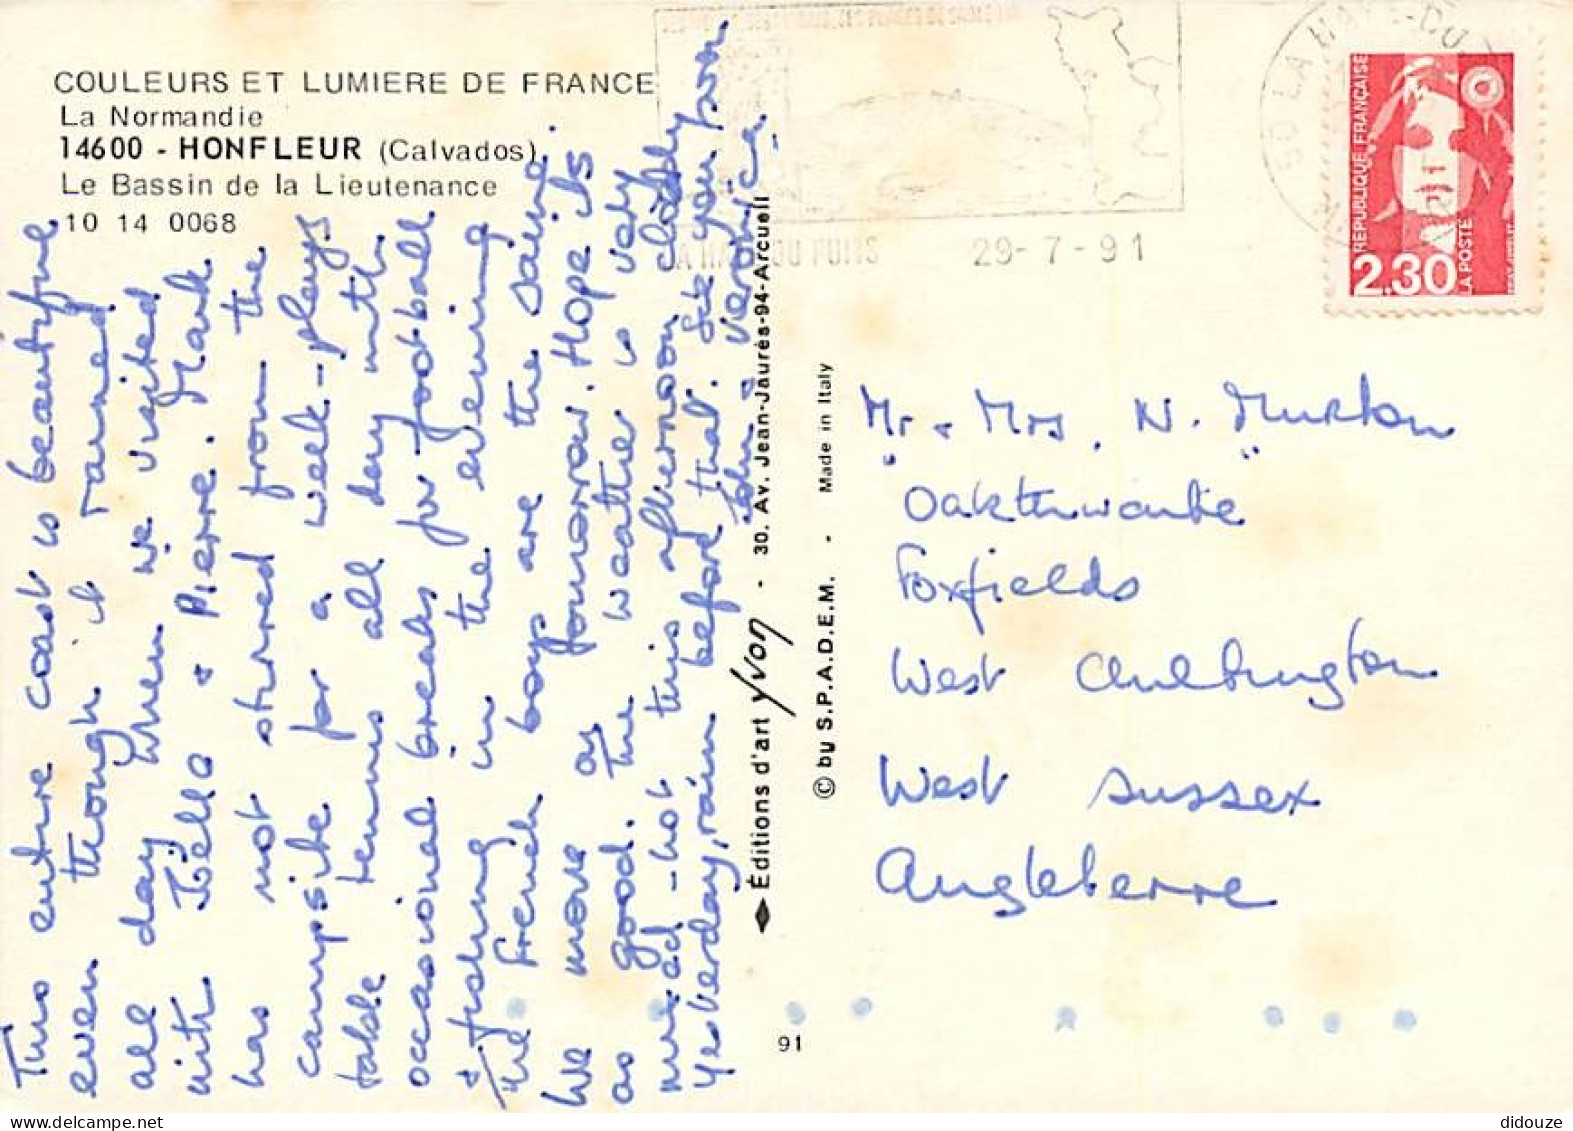 COULEURS ET LUMIERE DE FRANCE
La Normandie
14600 - HONFLEUR (Calvados)
Le Bassin de la Lieutenance
10 14 0068
This entire coast is beautiful
even though it rained
all day when we visited
with Joëlle & Pierre. Mark
has not stirred from the
campsite for a week - plays
table tennis all day with
occasional breaks for football
& fishing in the evening
The French boys are the same.
We move on tomorrow. Hope its
as good. The weather is very
mixed - hot this afternoon cloudy
yesterday, rain before that. See you soon
John & Veronica
Éditions d'art Yvon - 30. Av. Jean-Jaurès-94-Arcueil
© by S.P.A.D.E.M. - Made in Italy
29-7-91
RÉPUBLIQUE FRANÇAISE
2.30
LA POSTE
Mr & Mrs. N. Murton
"Oakthwaite"
Foxfields
West Chiltington
West Sussex
Angleterre
91
didouze